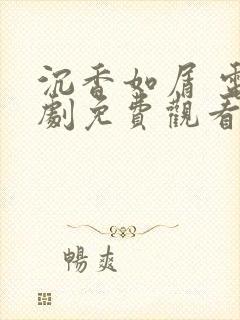 沉香如屑 電
劇免費觀看
暢爽